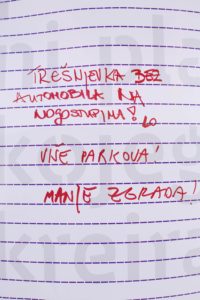 TREŠNJEVKA BEZ
AUTOMOBILA NA
NOGOSTUPIMA!
VIŠE PARKOVA!
MANJE ZGRADA!